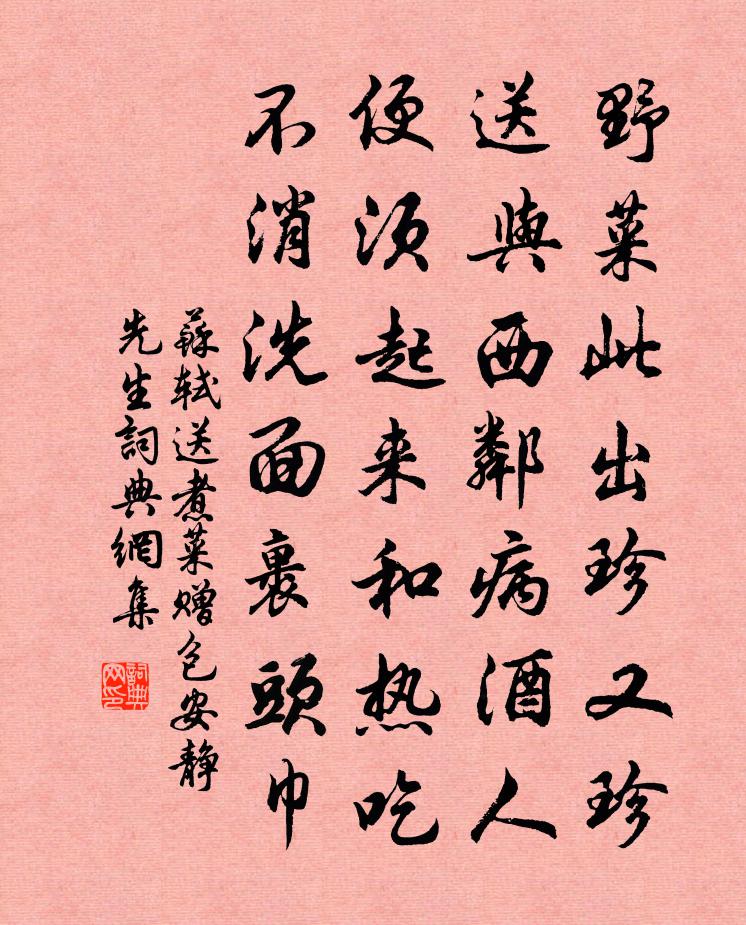 野菜此出珍又珍
送與西鄰病酒人
便須起来和热吃
不消洗面裹頭巾
蘇轼送煮菜赠包安静
先生詞典網集
詞典网印